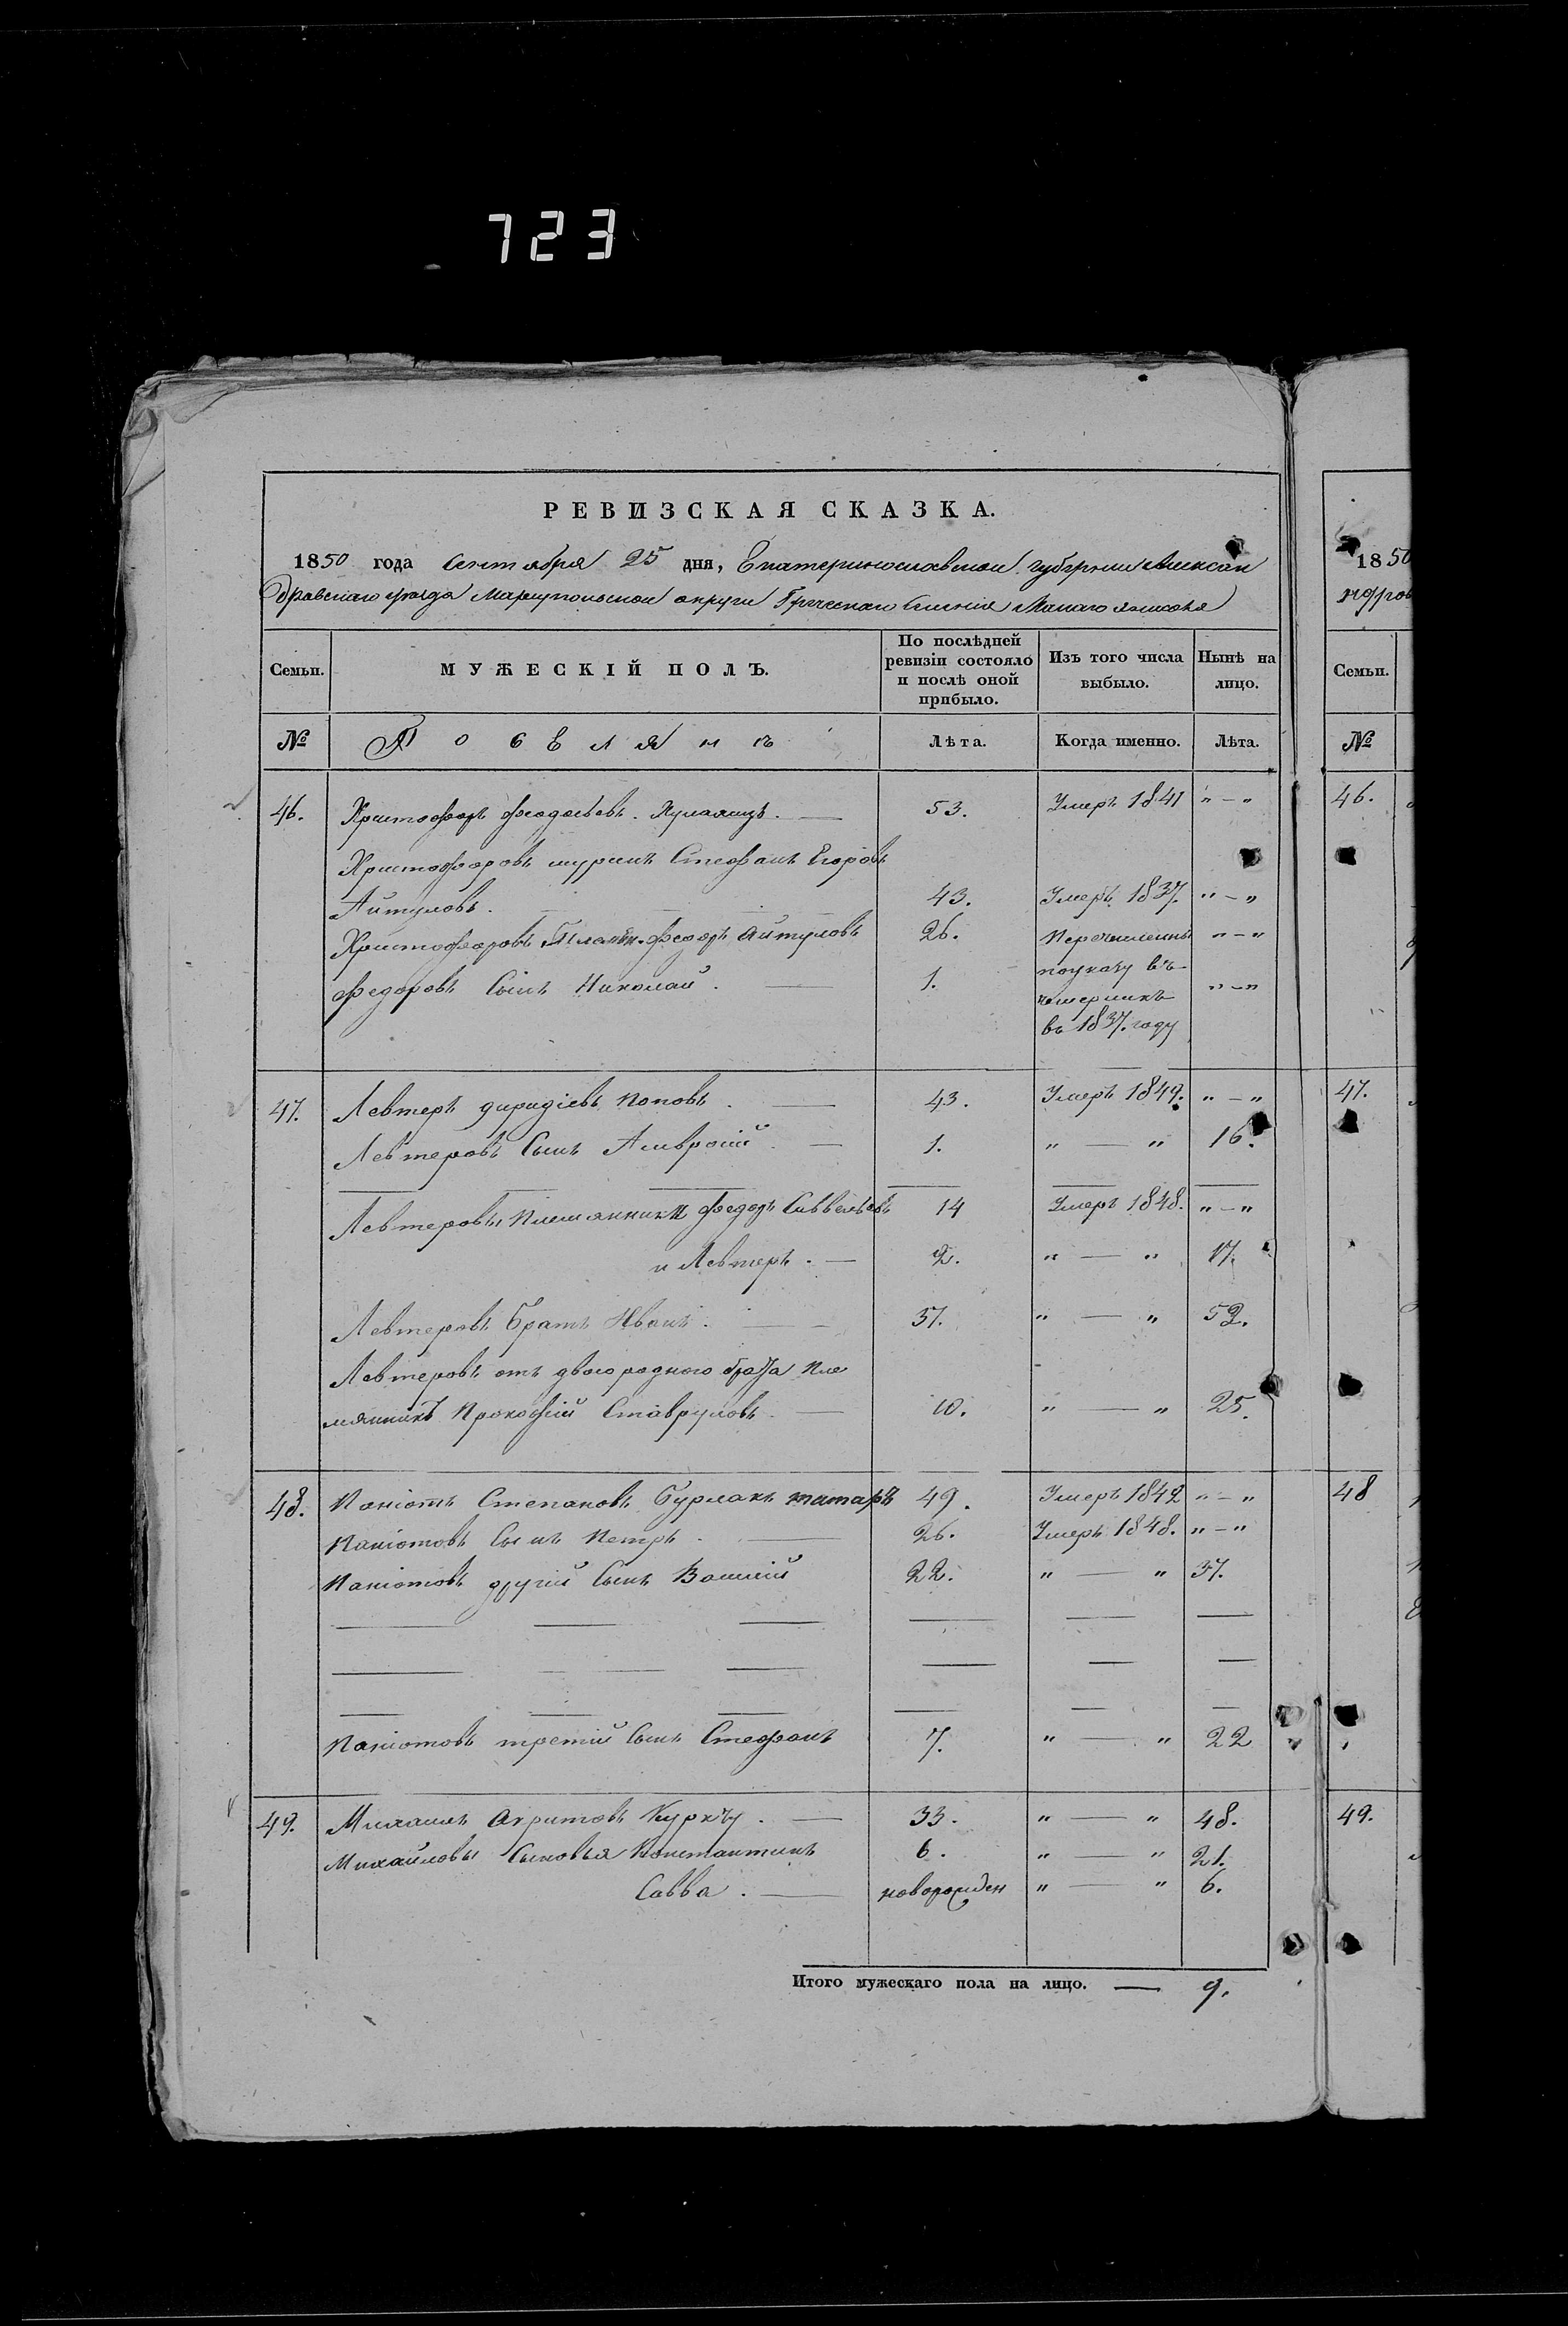 723
РЕВИЗСКАЯ СКАЗКА.
1850 года Сентября 25 дня, Екатеринославской губерніи Алексан
дровскаго уѣзда Маріупольской округи Греческаго Селенія Малаго Янисоля
Семьи. МУЖЕСКІЙ ПОЛЪ. По послѣдней ревизіи состояло и послѣ оной прибыло. Изъ того числа выбыло. Нынѣ на лицо.
№ Поселянъ Лѣта. Когда именно. Лѣта.
46. Христофоръ Феодосьевъ 53. Умеръ 1841 „ – „
Христофоровъ шуринъ Стефанъ Егоровъ
Айтуловъ. 43. Умеръ 1837. „ – „
Христофоровъ Племян. Федоръ Айтуловъ 26. Перечисленны „ – „
Федоровъ Сынъ Николай. 1. по указу въ „ – „
въ 1837. году
47. Левтеръ Поповъ. 43. Умеръ 1849. „ – „
Левтеровъ Сынъ Амвросій 1. „ — „ 16.
Левтеровы племянники Федоръ 14 Умеръ 1848. „ – „
и Левтеръ. 2. „ — „ 17.
Левтеровъ братъ Иванъ. 37. „ — „ 52.
Левтеровъ отъ двоюродного брата пле
мянникъ Прокофій Ставруловъ 10. „ — „ 25.
48. Паніотъ Степановъ Бурлакъ татаръ 49. Умеръ 1842 „ – „
Паніотовъ Сынъ Петръ. 26. Умеръ 1848. „ – „
Паніотовъ другій Сынъ Василій 22. „ — „ 37.
Паніотовъ третій Сынъ Стефанъ 7. „ — „ 22
49. Михаилъ Акритовъ Куркчу. 33. „ — „ 48.
Михайловы Сыновья Константинъ 6. „ — „ 21.
Савва. новорожден „ — „ 6.
Итого мужескаго пола на лицо. — 9.
1850
ндров
Семьи.
№
46.
47.
48
49.